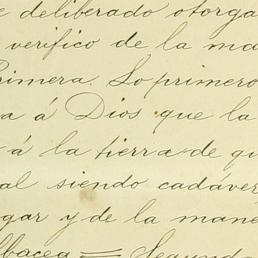 e deliberado otorga
verifico de la ma
Primera. Lo primero
a á Dios que la
á la tierra de qu
al siendo cadáver
gar y de la mane
lbacea = Segund